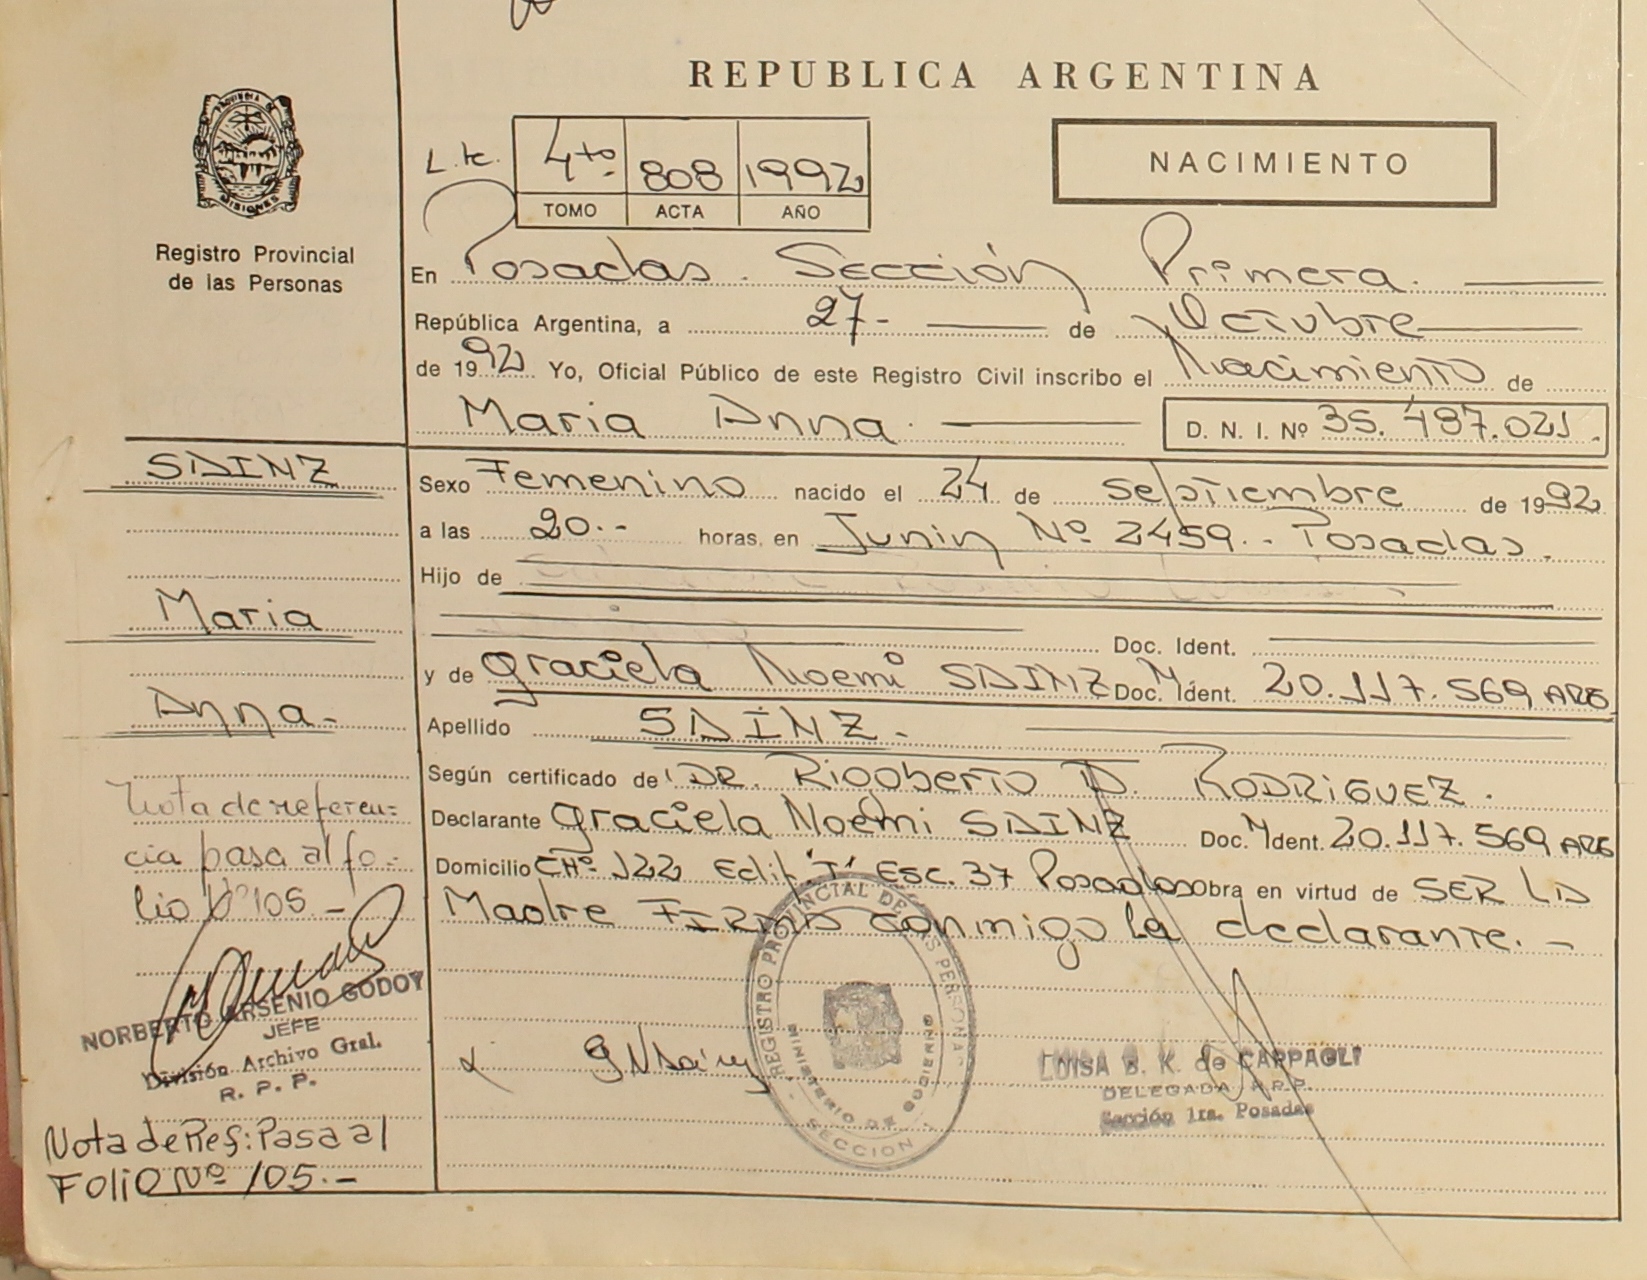 REPUBLICA ARGENTINA
PROVINCIA DE
MISIONES
Registro Provincial
de las Personas
NACIMIENTO
4to. 808 1992
TOMO ACTA AÑO
En Posadas. Sección Primera.
República Argentina, a 27- de Octubre
de 1992 Yo, Oficial Público de este Registro Civil inscribo el Nacimiento de
Maria Anna. D. N. I. Nº 35.487.021.
SAINZ
Maria
Anna-
Sexo Femenino nacido el 24 de Septiembre de 1992
a las 20.-- horas, en Junin Nº 2459.- Posadas.
Hijo de
Doc. Ident.
y de Graciela Noemi SAINZ Doc. Ident. 20.117.569 ARG
Apellido SAINZ.-
Según certificado de DR. Rigoberto D. RODRIGUEZ.
Declarante Graciela Noemi SAINZ Doc. Ident. 20.117.569 ARG
Domicilio CHº 122 Edif. "I" Esc. 37 Posadas obra en virtud de SER LA
Madre FIRMA conmigo la declarante.-
Nota de referen=
cia pasa al fo=
lio Nº 105.-
NORBERTO ARSENIO GODOY
JEFE
División Archivo Gral.
R. P. P.
Nota de Ref: Pasa al
FOLIO Nº 105.-
GNSainz
REGISTRO PROVINCIAL DE LAS PERSONAS
MINISTERIO DE GOBIERNO
SECCION 1
LUISA B. K. de CARPAGLI
DELEGADA R.R.P.
Sección 1ra. Posadas